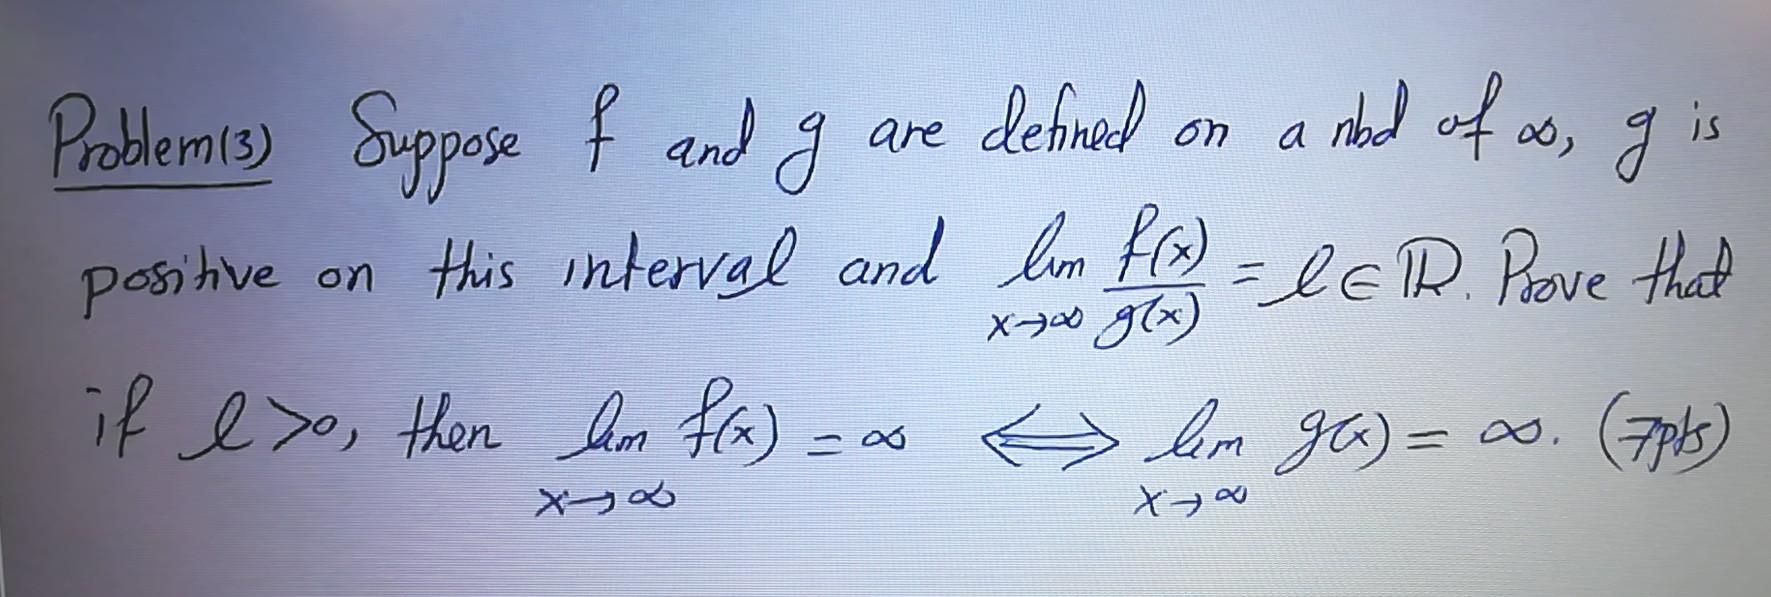 Problem(3) Suppose f and g are defined on a nbd of ∞, g is
positive on this interval and lim x→∞ f(x)/g(x) = l ∈ ℝ. Prove that
if l > 0, then lim x→∞ f(x) = ∞ ⟺ lim x→∞ g(x) = ∞. (7pts)